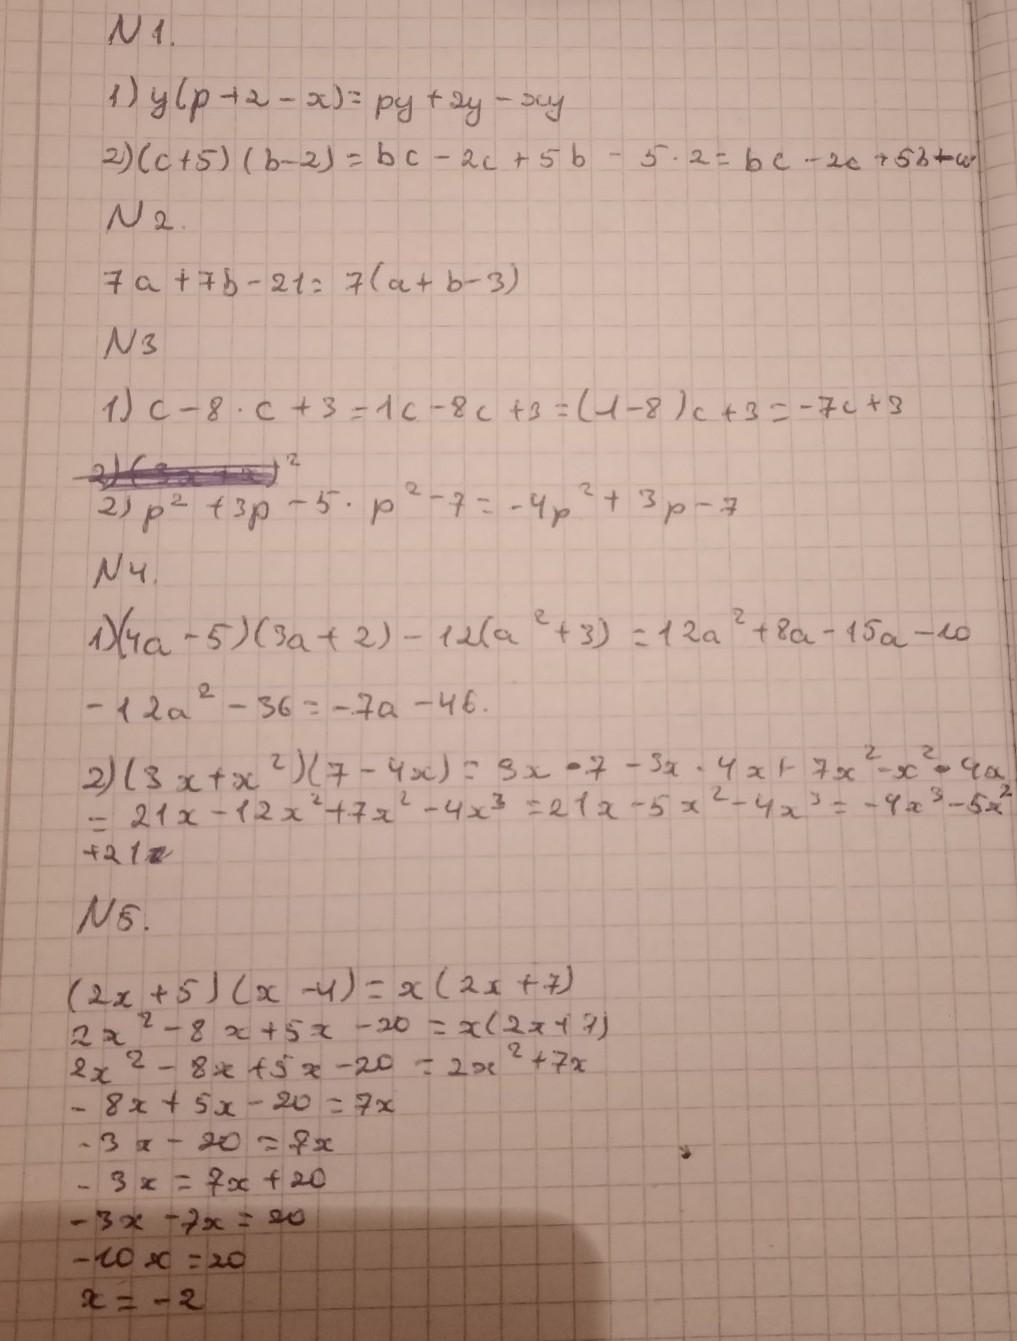 N 1.
1) y(p+2-x)= py+2y-xy
2)(c+5)(b-2)=bc-2c+5b-5·2=bc-2c+5b+
N 2.
7a+7b-21= 7(a+b-3)
N3
1) c-8·c+3=1c-8c+3=(1-8)c+3=-7c+3
2) p²+3p-5·p²-7=-4p²+3p-7
N4.
1)(4a-5)(3a+2)-12(a²+3)=12a²+8a-15a-10
-12a²-36=-7a-46.
2)(3x+x²)(7-4x)=3x·7-3x·4x+7x²-x²·4x
= 21x-12x²+7x²-4x³=21x-5x²-4x³=-4x³-5x²
+21x
N5.
(2x+5)(x-4)=x(2x+7)
2x²-8x+5x-20=x(2x+7)
2x²-8x+5x-20=2x²+7x
-8x+5x-20=7x
-3x-20=7x
-3x=7x+20
-3x-7x=20
-10x=20
x=-2